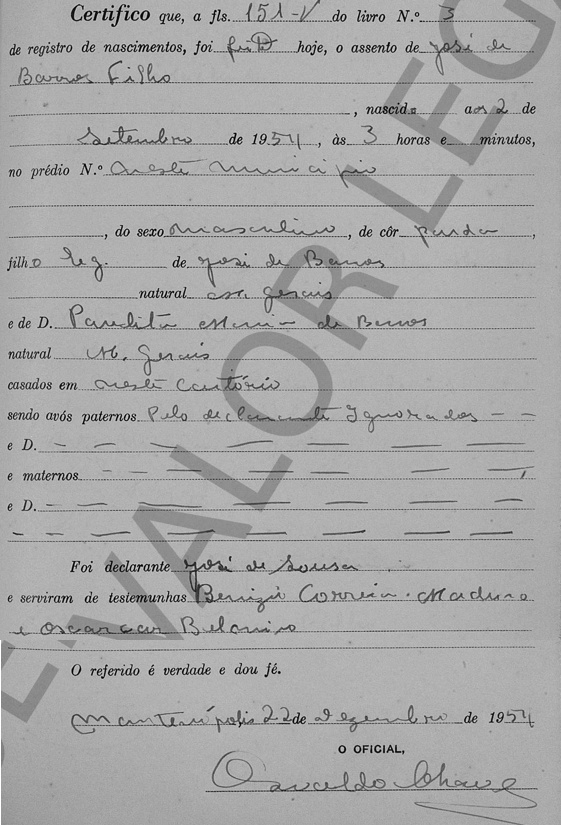 Certifico que, a fls. 151-V do livro N.º 3
de registro de nascimentos, foi feito hoje, o assento de José de
Barros Filho
, nascido aos 2 de
Setembro de 1954, às 3 horas e minutos,
no prédio N.º neste Municipio
, do sexo masculino, de côr parda,
filho leg. de José de Barros
natural M. Gerais
e de D. Maria de Barros
natural M. Gerais
casados em neste Cartório
sendo avós paternos Pelo declarante Ignorados - -
e D. - - - - - - -
e maternos - - - - - -,
e D. - - - - - - -
- - - - - - - -
Foi declarante José de Sousa
e serviram de testemunhas Correia Madura
e Oscar Belonio
O referido é verdade e dou fé.
Mantenópolis 22 de Dezembro de 1954
O OFICIAL,
Osvaldo Chaves
SEM VALOR LEGAL